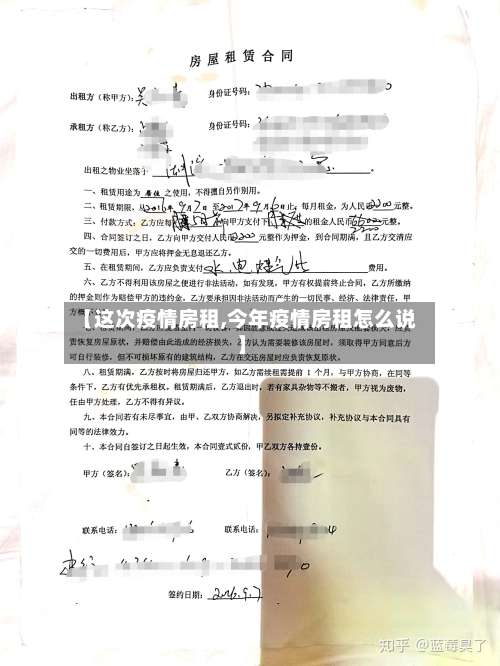 房屋租赁合同
出租方（称甲方）：吴 身份证号码：
承租方（称乙方）： 身份证号码：
出租之物业坐落于
一、租赁用途为 居住 之使用，不得擅自另作别用。
二、租赁期限，从2016年9月7日至2017年9月6日止，每月租金，为人民币2200元整。
三、付款方式，乙方应每 向甲方支付下 的租金人民币 元整。
四、合同签订之日，乙方向甲方交付人民币2200元整作为押金，到合同期满，且乙方交清应
交的一切费用后，甲方应将押金无息退还乙方。
五、在租赁期间，乙方应负责支付 水电燃气 费用。
六、乙方不得利用该房屋之便进行非法活动，如有发现，甲方有权提前终止合同，乙方所缴
纳的押金作为赔偿甲方的违约金。乙方要承担因非法活动而产生的一切民事、经济、法律责任，甲
方概
【这次疫情房租,今年疫情房租怎么说
】
责恢复房屋原状，并赔偿由此造成的经济损失。乙方认为需要装修该房屋时，须取得甲方同意后方
可自行装修，但不可损坏原有的建筑结构，乙方在交还房屋时应负责恢复原状。
八、租赁期满，乙方按时将房屋归还甲方，如乙方需续租需提前 1 个月，与甲方协商，在同等
条件下，乙方有优先承租权。租赁期满后，乙方退出时，若有家具杂物等不搬者，甲方视为废物，
任由甲方处理，乙方不得有异议。
九、本合同若有未尽事宜，由甲、乙双方协商解决，另拟定补充协议，补充协议与本合同具有
同等的法律效力。
十、本合同自签订之日起生效，本合同壹式贰份，甲乙双方各持壹份。
甲方（签名）： 乙方（签名）：
联系电话： 联系电话：
签约日期：2016.9.7
知乎 @蓝莓臭了